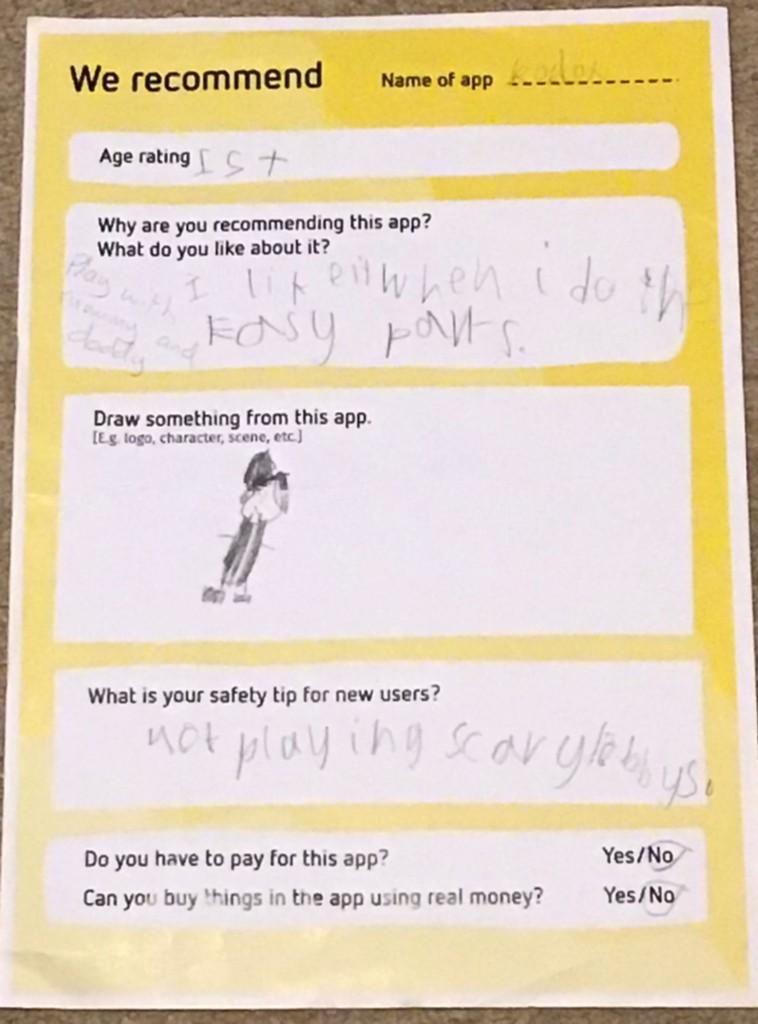 We recommend
Name of app
Age rating I S +
Why are you recommending this app?
What do you like about it?
Play with
mummy and
daddy
I like it when i do the
EASy parts.
Draw something from this app.
[E.g. logo, character, scene, etc.]
What is your safety tip for new users?
not playing scary lobbys.
Do you have to pay for this app? Yes/No
Can you buy things in the app using real money? Yes/No